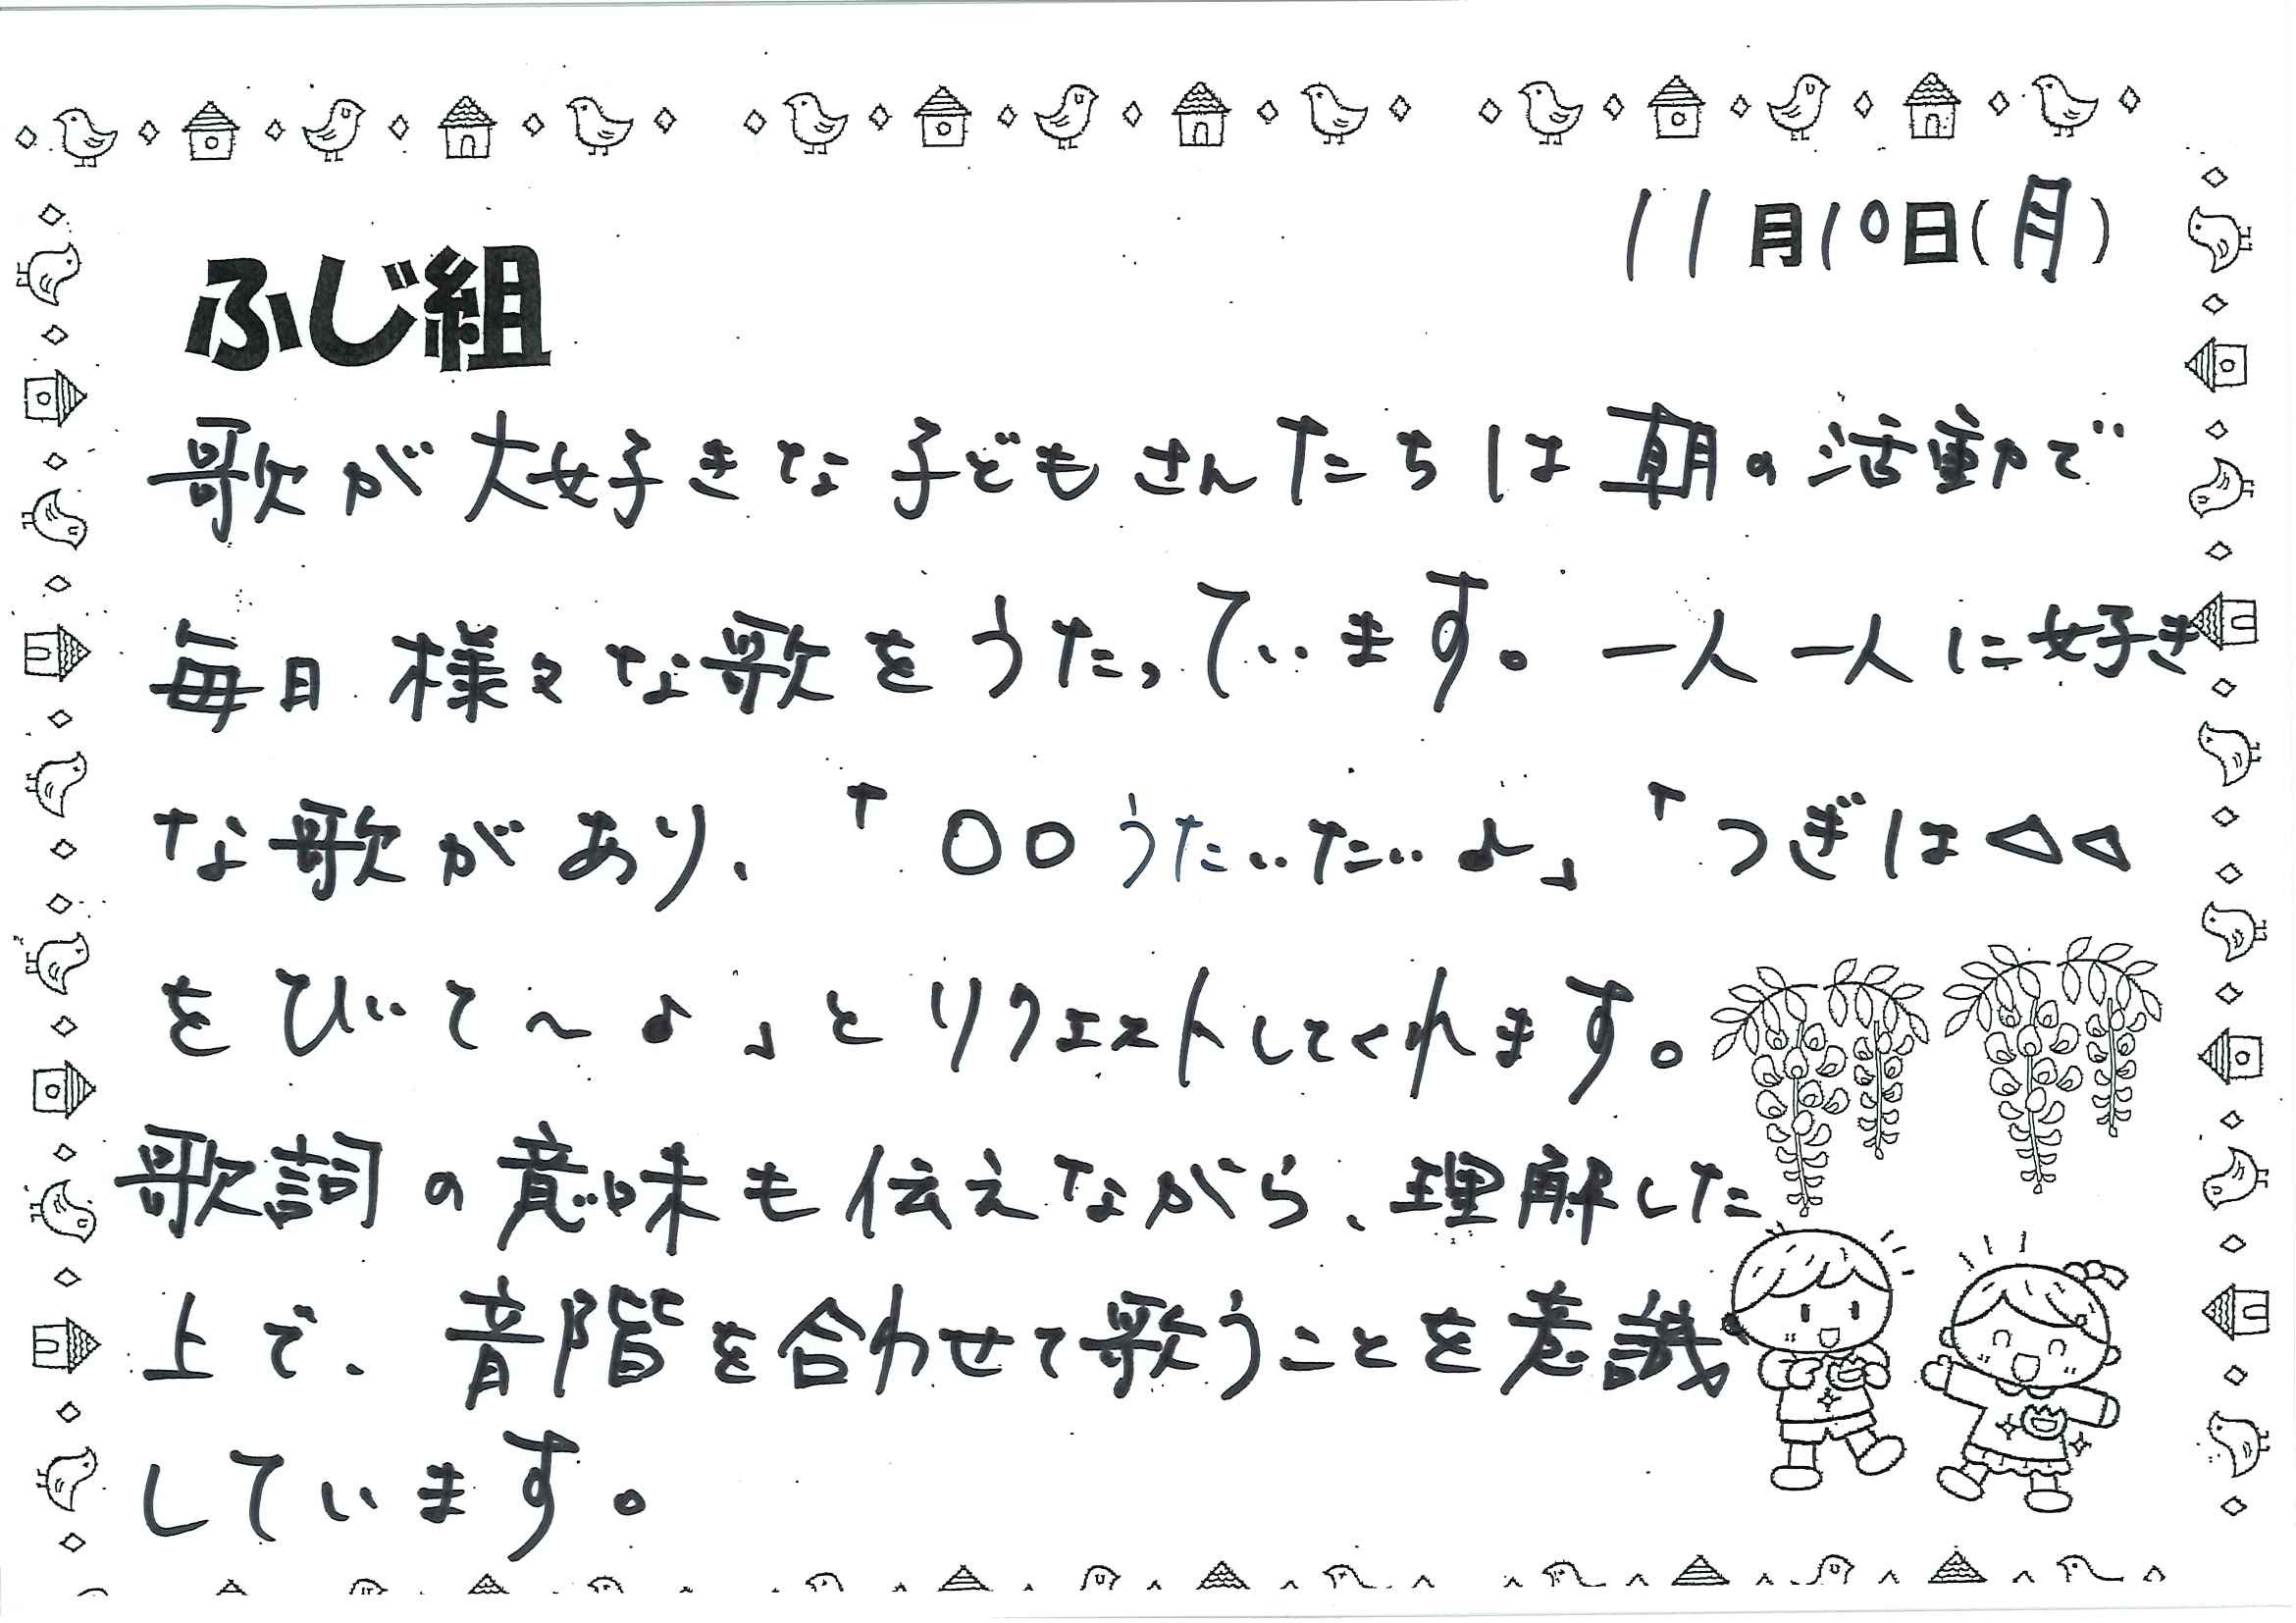 11月10日(月)
ふじ組
歌が大好きな子どもさんたちは朝の活動で
毎日様々な歌をうたっています。一人一人に好き
な歌があり、「〇〇うたいたい♪」「つぎは△△
をひいて〜♪」とリクエストしてくれます。
歌詞の意味も伝えながら、理解した
上で、音階を合わせて歌うことを意識
しています。